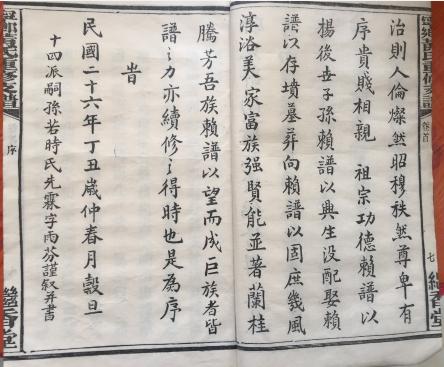 治則人倫燦然昭穆秩然尊卑有
序貴賤相親 祖宗功德賴譜以
揚後世子孫賴譜以興生没配娶賴
譜以存墳墓葬向賴譜以固庶幾風
淳浴美家富族强賢能並著蘭桂
騰芳吾族賴譜以望而成巨族者皆
譜之力亦續修之得時也是為序
旹
民國二十六年丁丑歲仲春月穀旦
十四派嗣孫若時氏先霖字雨芬謹叙并書
卷首
七
序